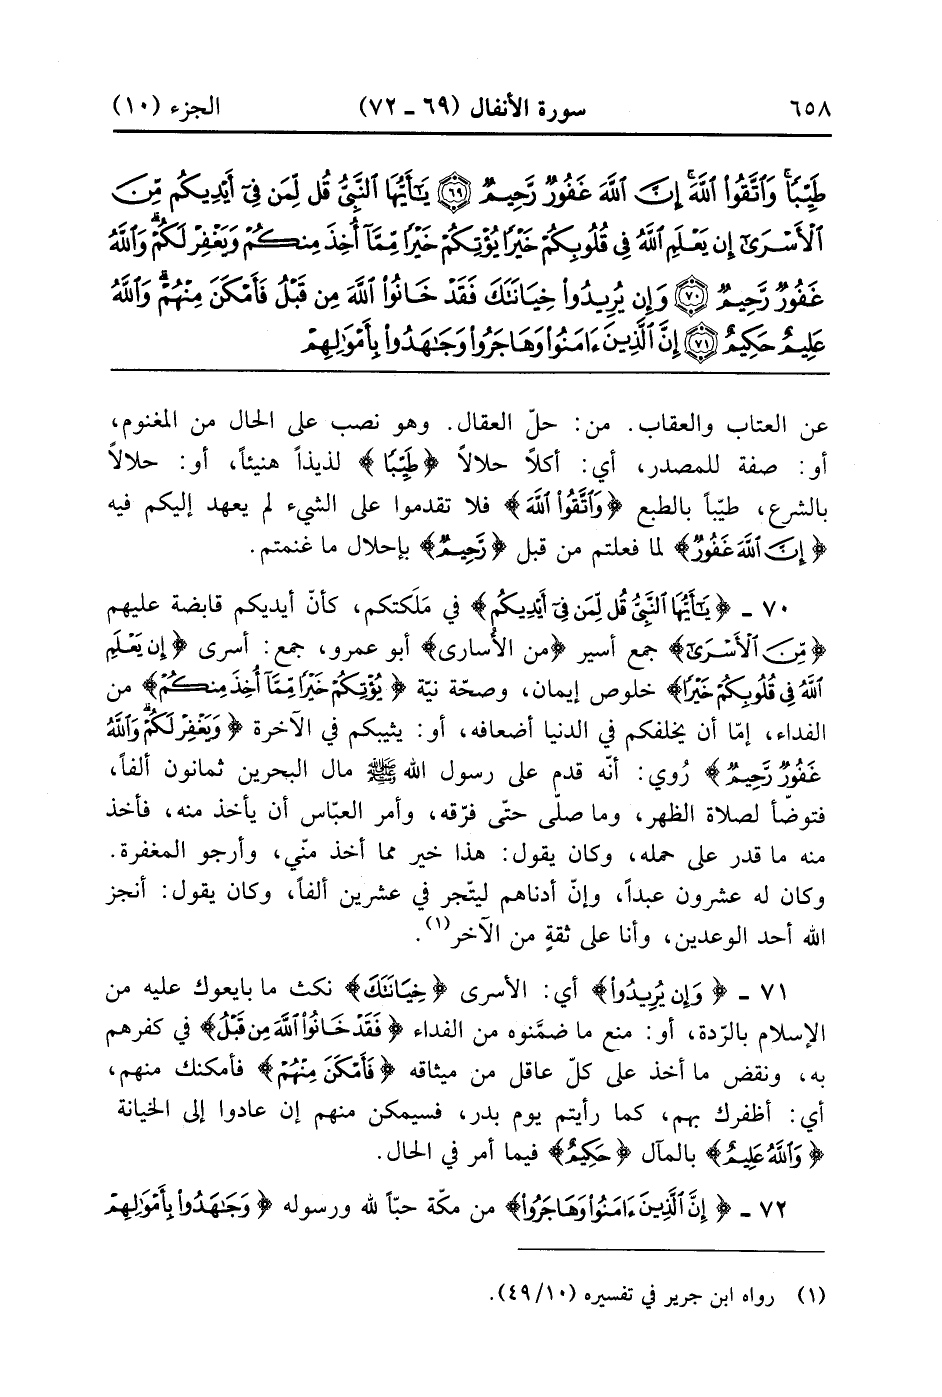 ٦٥٨ سورة الأنفال (٦٩ - ٧٢) الجزء (١٠)
طَيِّبًا وَاتَّقُوا اللَّهَ إِنَّ اللَّهَ غَفُورٌ رَّحِيمٌ ٦٩ يَا أَيُّهَا النَّبِيُّ قُل لِّمَن فِي أَيْدِيكُم مِّنَ
الْأَسْرَى إِن يَعْلَمِ اللَّهُ فِي قُلُوبِكُمْ خَيْرًا يُؤْتِكُمْ خَيْرًا مِّمَّا أُخِذَ مِنكُمْ وَيَغْفِرْ لَكُمْ وَاللَّهُ
غَفُورٌ رَّحِيمٌ ٧٠ وَإِن يُرِيدُوا خِيَانَتَكَ فَقَدْ خَانُوا اللَّهَ مِن قَبْلُ فَأَمْكَنَ مِنْهُمْ وَاللَّهُ
عَلِيمٌ حَكِيمٌ ٧١ إِنَّ الَّذِينَ ءَامَنُوا وَهَاجَرُوا وَجَاهَدُوا بِأَمْوَالِهِمْ
عن العتاب والعقاب. من: حلّ العقال. وهو نصب على الحال من المغنوم،
أو: صفة للمصدر، أي: أكلاً حلالاً ﴿طَيِّبًا﴾ لذيذاً هنيئاً، أو: حلالاً
بالشرع، طيّباً بالطبع ﴿وَاتَّقُوا اللَّهَ﴾ فلا تقدموا على الشيء لم يعهد إليكم فيه
﴿إِنَّ اللَّهَ غَفُورٌ﴾ لما فعلتم من قبل ﴿رَّحِيمٌ﴾ بإحلال ما غنمتم.
٧٠ - ﴿يَا أَيُّهَا النَّبِيُّ قُل لِّمَن فِي أَيْدِيكُم﴾ في مَلَكتكم، كأنّ أيديكم قابضة عليهم
﴿مِّنَ الْأَسْرَى﴾ جمع أسير ﴿من الأُسارى﴾ أبو عمرو، جمع: أسرى ﴿إِن يَعْلَمِ
اللَّهُ فِي قُلُوبِكُمْ خَيْرًا﴾ خلوص إيمان، وصحّة نيّة ﴿يُؤْتِكُمْ خَيْرًا مِّمَّا أُخِذَ مِنكُمْ﴾ من
الفداء، إمّا أن يخلفكم في الدنيا أضعافه، أو: يثيبكم في الآخرة ﴿وَيَغْفِرْ لَكُمْ وَاللَّهُ
غَفُورٌ رَّحِيمٌ﴾ رُوي: أنّه قدم على رسول الله ﷺ مال البحرين ثمانون ألفاً،
فتوضّأ لصلاة الظهر، وما صلّى حتّى فرّقه، وأمر العبّاس أن يأخذ منه، فأخذ
منه ما قدر على حمله، وكان يقول: هذا خير مما أخذ منّي، وأرجو المغفرة.
وكان له عشرون عبداً، وإنّ أدناهم ليتّجر في عشرين ألفاً، وكان يقول: أنجز
الله أحد الوعدين، وأنا على ثقةٍ من الآخر(١).
٧١ - ﴿وَإِن يُرِيدُوا﴾ أي: الأسرى ﴿خِيَانَتَكَ﴾ نكث ما بايعوك عليه من
الإسلام بالرّدة، أو: منع ما ضمَّنوه من الفداء ﴿فَقَدْ خَانُوا اللَّهَ مِن قَبْلُ﴾ في كفرهم
به، ونقض ما أخذ على كلّ عاقل من ميثاقه ﴿فَأَمْكَنَ مِنْهُمْ﴾ فأمكنك منهم،
أي: أظفرك بهم، كما رأيتم يوم بدر، فسيمكن منهم إن عادوا إلى الخيانة
﴿وَاللَّهُ عَلِيمٌ﴾ بالمآل ﴿حَكِيمٌ﴾ فيما أمر في الحال.
٧٢ - ﴿إِنَّ الَّذِينَ ءَامَنُوا وَهَاجَرُوا﴾ من مكّة حبّاً لله ورسوله ﴿وَجَاهَدُوا بِأَمْوَالِهِمْ
(١) رواه ابن جرير في تفسيره (٤٩/١٠).